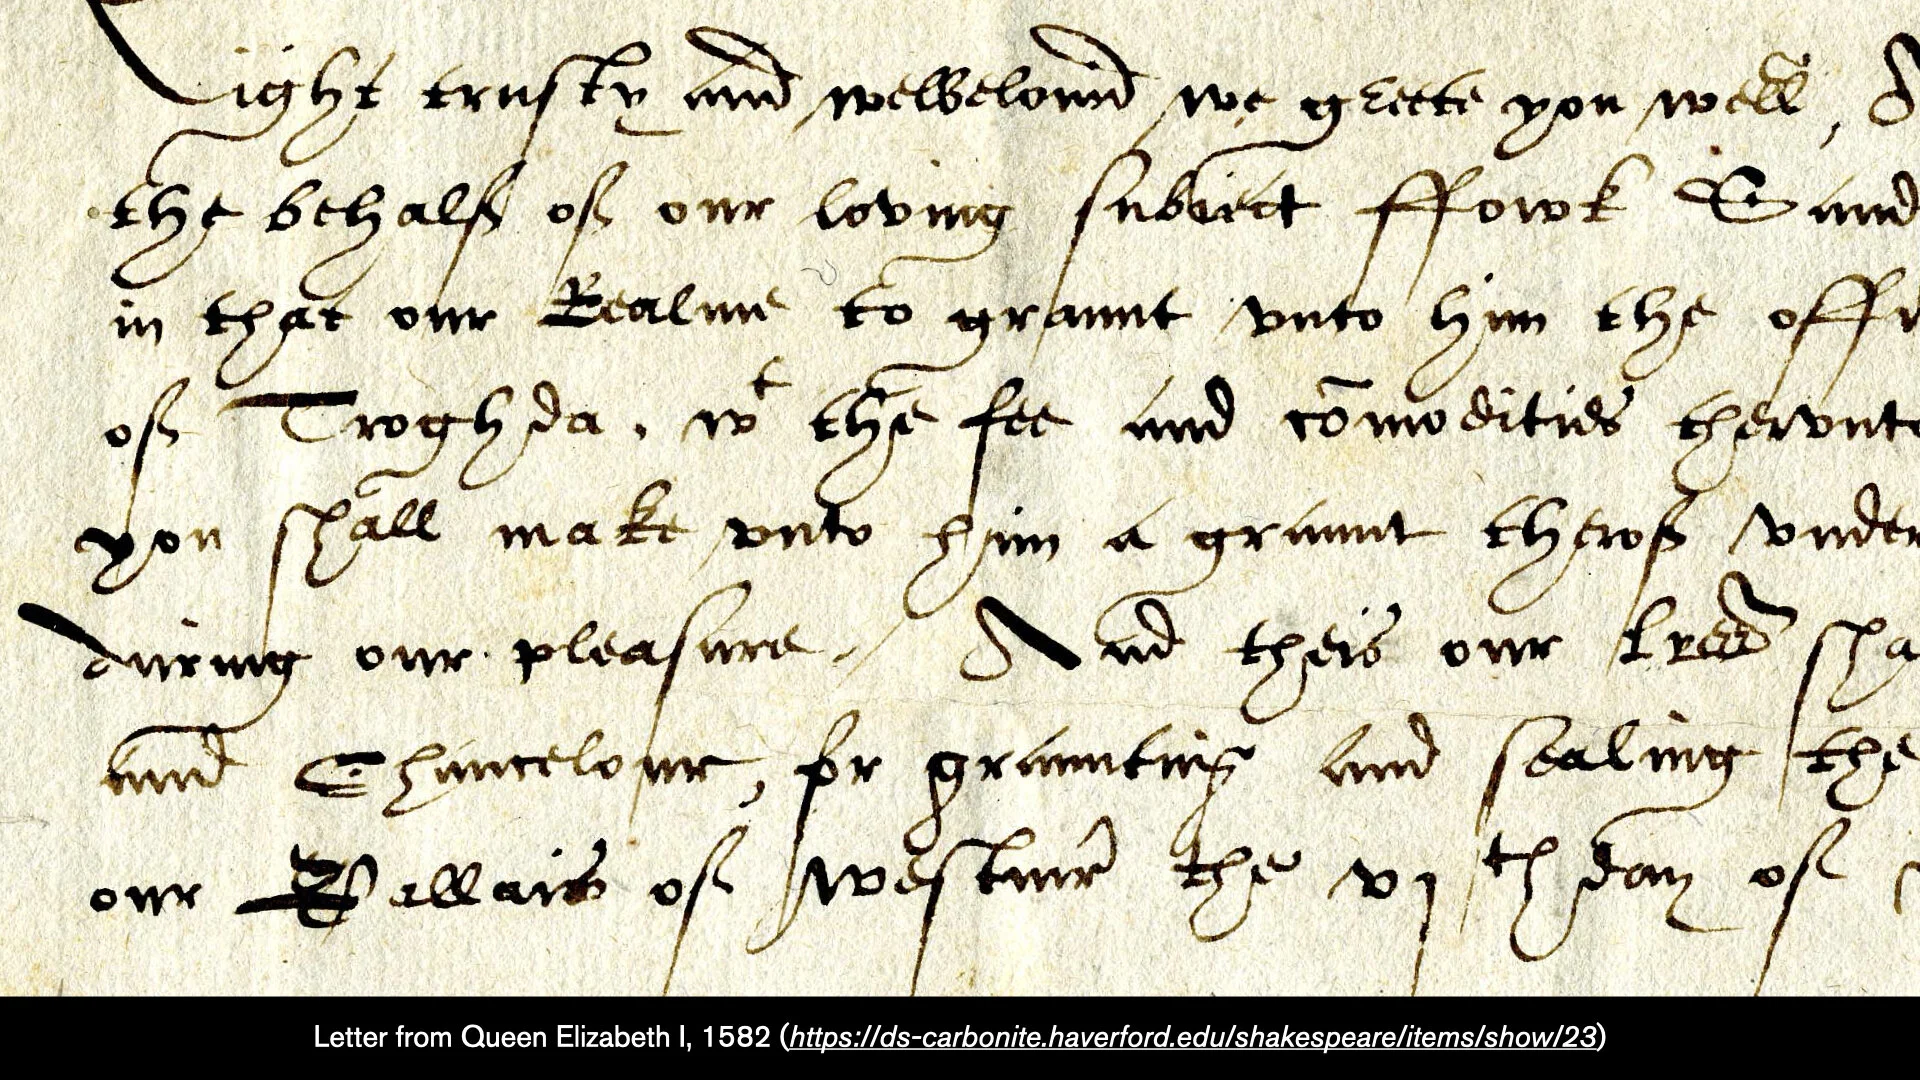 Right trusty and welbeloued we greete you well, A
the behalf of our loving subiect ffowk Sand
in that our Realme to graunt vnto him the offi
of Troghda, wt the fee and cōmodities thervnto
you shall make vnto him a graunt therof vnder
during our pleasure. And theis our lres sha
and Chancelour, for graunting and sealing the
our Pallais of westmr the vjth day of
Letter from Queen Elizabeth I, 1582 (https://ds-carbonite.haverford.edu/shakespeare/items/show/23)